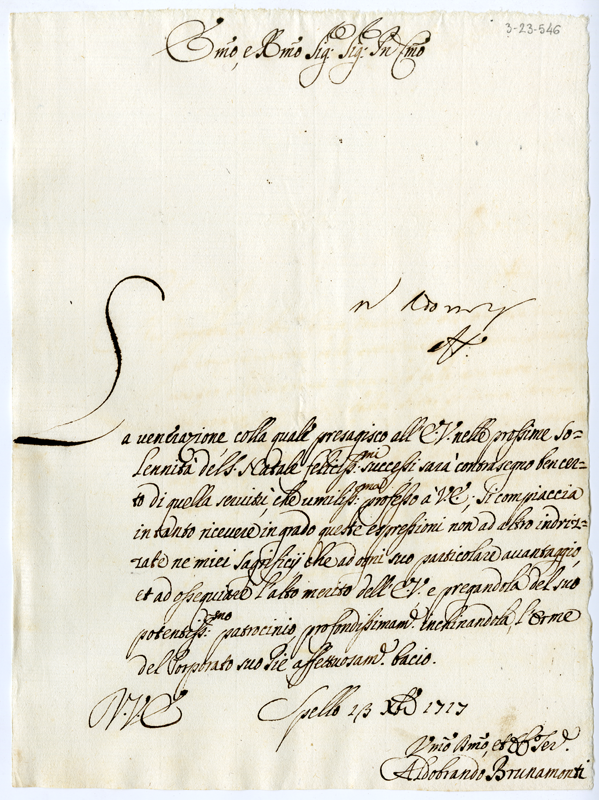 3-23-546
Emo, e Rmo Sig: Sig: Prn Cmo
La venerazione colla quale presagisco all'E.V. nelle prossime so=
lennità del S. Natale feliciss:mi successi sarà contrasegno ben cer=
to di quella servitù che umiliss:ma professo a V.E; Si compiaccia
in tanto ricevere in grado queste espressioni non ad altro indriz=
zate ne miei sagrificij che ad ogni suo particolare avantaggio,
et ad ossequiare l'alto merito dell'E.V. e pregandola del suo
potentiss:mo patrocinio profondissimam.e inchinandola, l'orme
del Porporato suo Piè affettuosam.e bacio.
V.V.E
Spello 23 Xbre 1717
Vmo Dmo, et Ser.e
Aldobrando Brunamonti